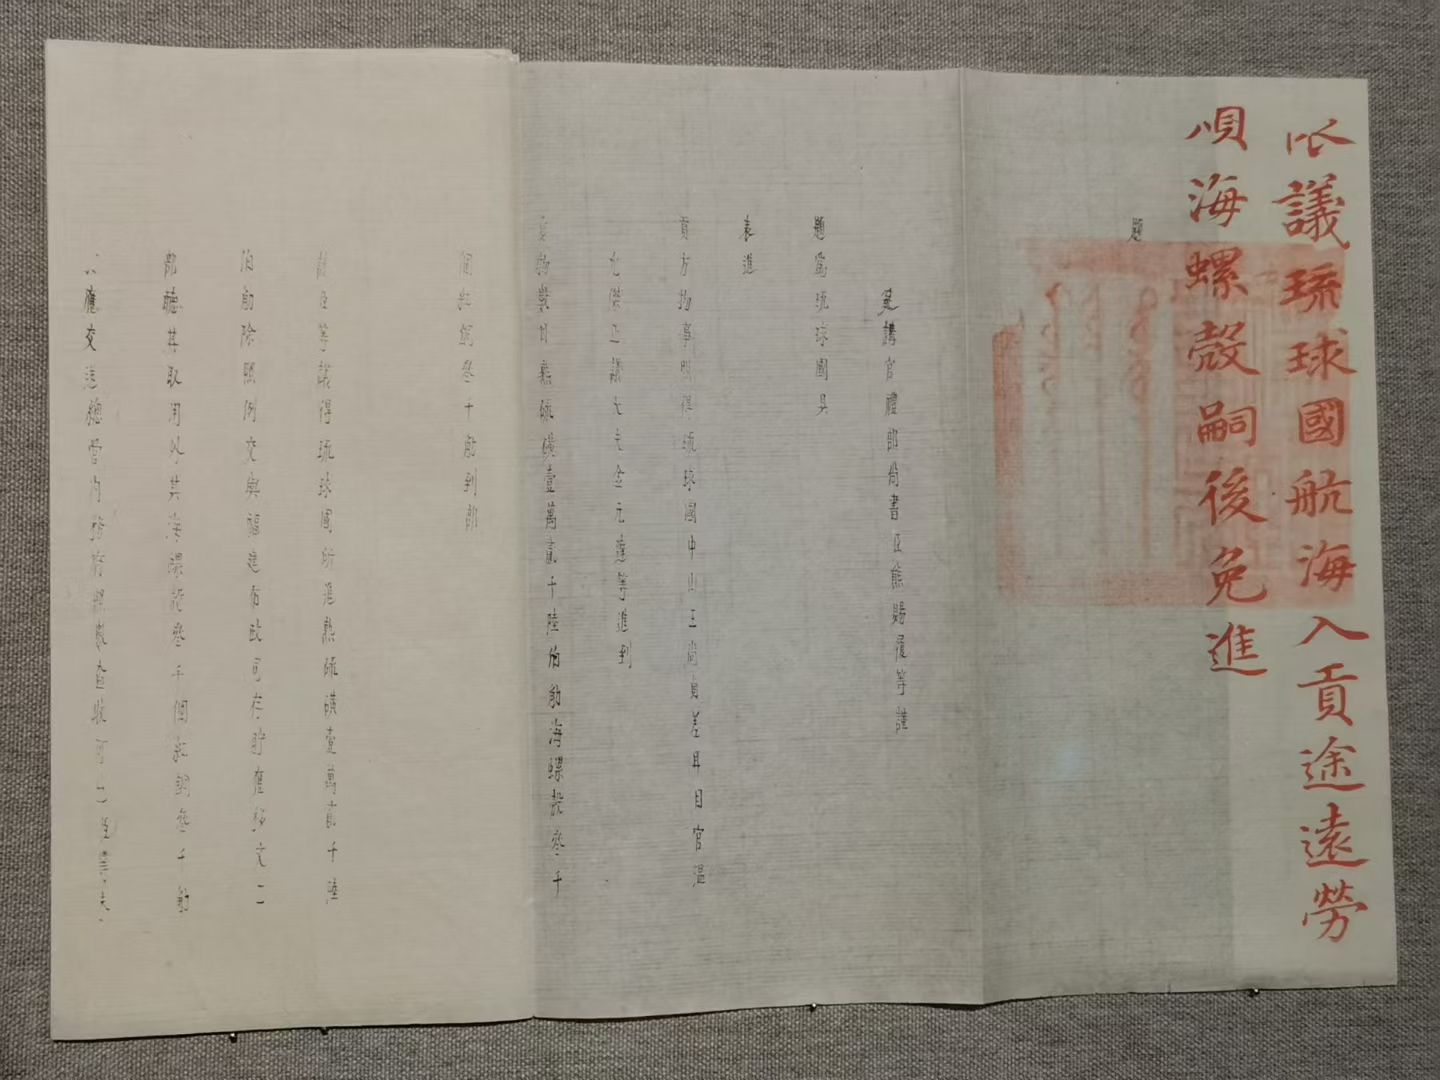 依議琉球國航海入貢途遠勞
㥧海螺殻嗣後免進
題
經筵講官禮部尚書臣熊賜履等謹
題爲琉球國具
表進
貢方物事照得琉球國中山王尚貞差耳目官溫
允傑正議大夫金元達等進到
貢物嵗目熟硫磺壹萬貳千陸佰觔海螺殼叁千
個紅銅叁千觔到部
該臣等議得琉球國所進熟硫磺壹萬貳千陸
佰觔除照例交與福建布政司存貯應移文工
部聽其取用以其海螺殼叁千個紅銅叁千觔
應交送總管内務府照數查收可也